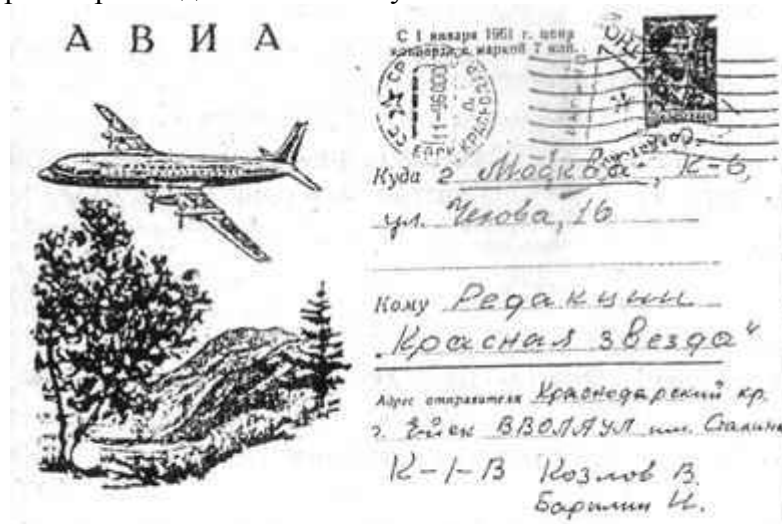 АВИА
С 1 января 1961 г. цена
конверта с маркой 7 коп.
Куда г Москва, К-6,
ул. Чехова, 16
Кому Редакции
„Красная звезда“
Адрес отправителя Краснодарский кр.
г. Ейск ВВОЛАУЛ им. Сталина
К-1-В Козлов В.
Барилин И.